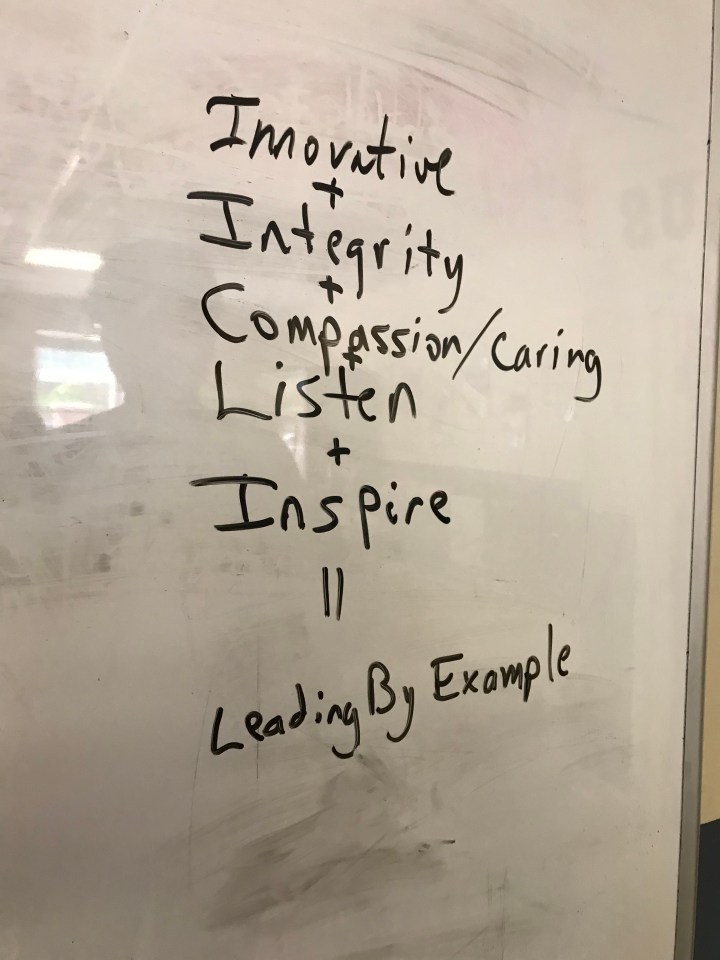 Innovative
+
Integrity
+
Compassion/Caring
+
Listen
+
Inspire
||
Leading By Example